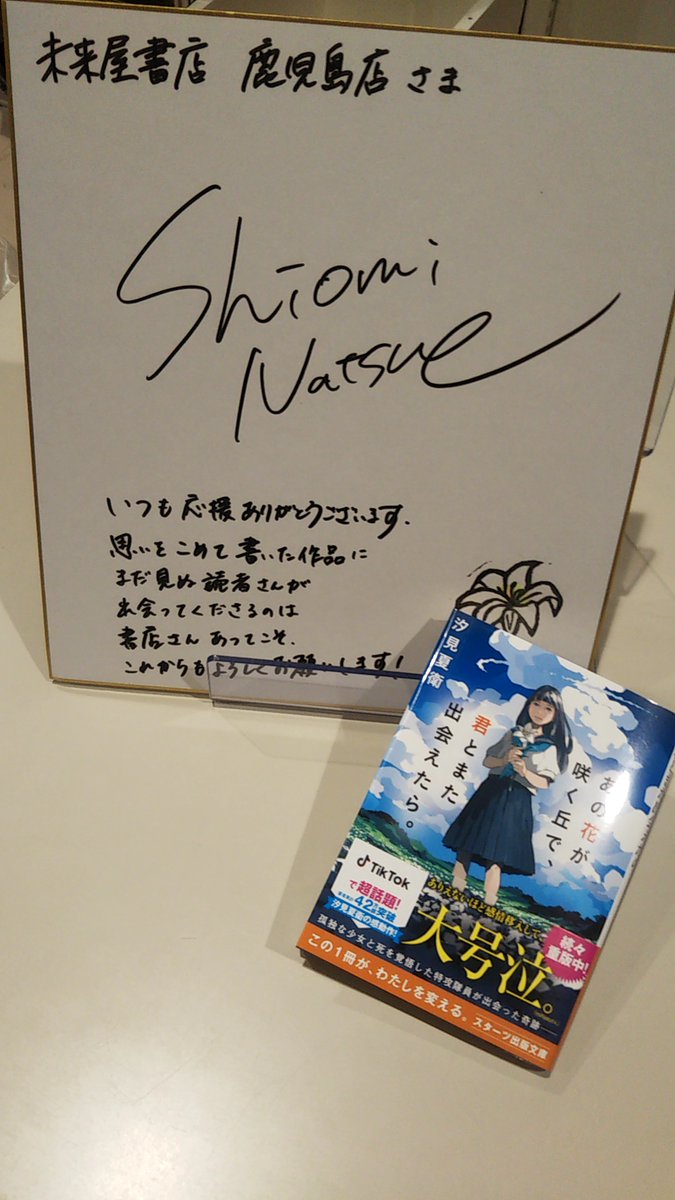 未来屋書店 鹿児島店 さま
Shiomi
Natsue
いつも 応援 ありがとうございます.
思いを こめて 書いた 作品に
まだ 見ぬ 読者さんが
出会ってくださるのは
書店さん あってこそ.
これからも よろしくお願いします!
汐見夏衛
あの花が
咲く丘で、
君とまた
出会えたら。
TikTok
で超話題!
42万突破
汐見夏衛の感動作!
ありえないほど感情移入して
大号泣。
続々
重版中!
孤独な少女と死を覚悟した特攻隊員が出会った奇跡
この1冊が、わたしを変える。 スターツ出版文庫